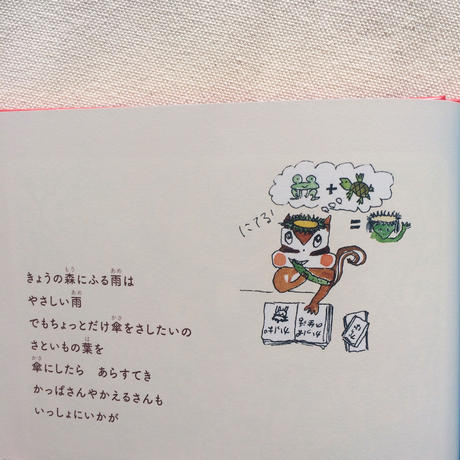 にてる!
+
=
もり あめ
きょうの森にふる雨は
あめ
やさしい雨
かさ
でもちょっとだけ傘をさしたいの
は
さといもの葉を
かさ
傘にしたら あらすてき
かっぱさんやかえるさんも
いっしょにいかが